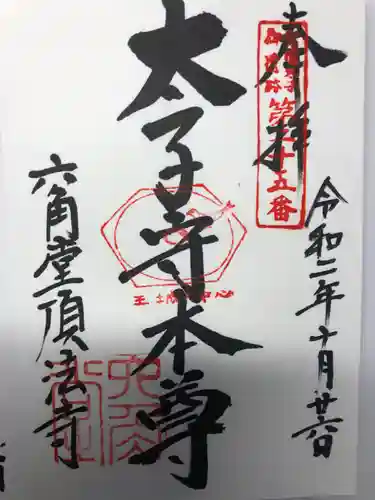 奉拝
第三十五番
令和二年十月廿六日
太子守本尊
王城中心
六角堂頂法寺